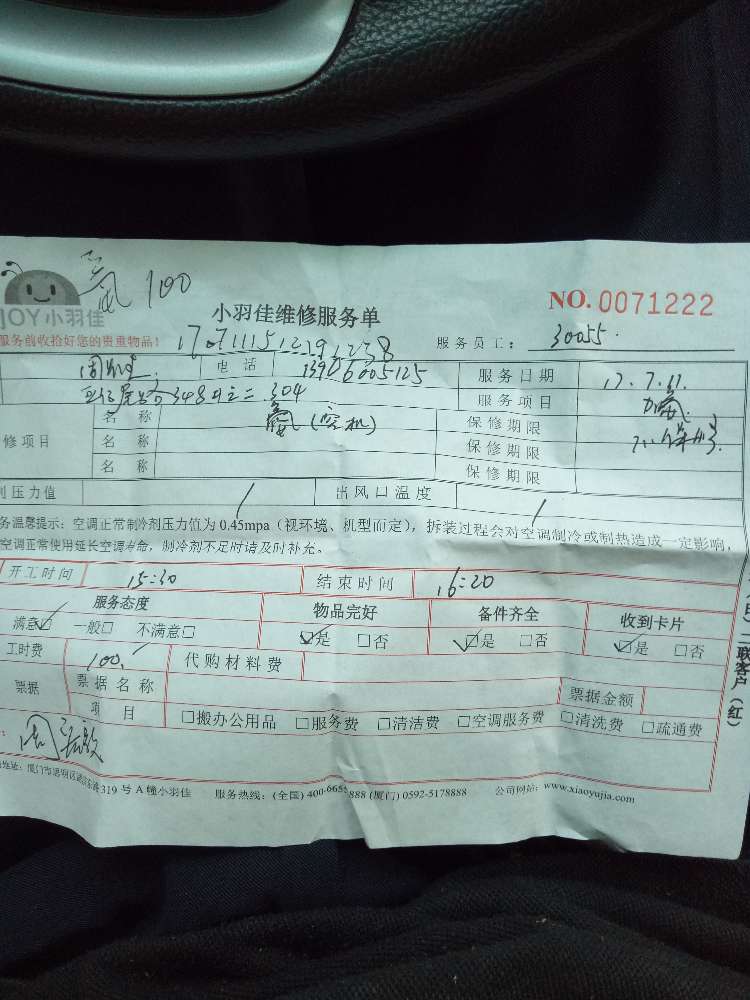 氟 100
JOY小羽佳
小羽佳维修服务单
NO. 0071222
服务前收拾好您的贵重物品!
服务员工: 30055
电 话 13906005125
服务日期 17.7.
348 304
服务项目 加氟
修项目
名 称 (空机) 保修期限
名 称 保修期限
名 称 保修期限
剂压力值 / 出风口温度 /
务温馨提示: 空调正常制冷剂压力值为 0.45mpa (视环境、机型而定), 拆装过程会对空调制冷或制热造成一定影响,
空调正常使用延长空调寿命, 制冷剂不足时请及时补充。
开工时间 15:30 结束时间 16:20
服务态度 物品完好 备件齐全 收到卡片
满意☑ 一般□ 不满意□ ☑是 □否 ☑是 □否 ☑是 □否
工时费 100. 代购材料费
票据 票据名称 票据金额
项 目 □搬办公用品 □服务费 □清洁费 □空调服务费 □清洗费 □疏通费
二联客户(红)
地址: 厦门市思明区 319 号 A 幢小羽佳 服务热线: (全国) 400-6655888 (厦门) 0592-5178888 公司网站: www.xiaoyujia.com